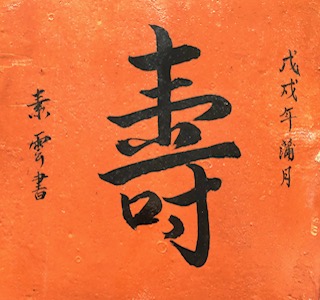 戊戌年蒲月
壽
素雲書